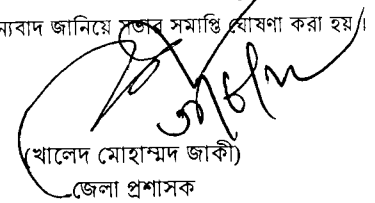 ন্যবাদ জানিয়ে সভার সমাপ্তি ঘোষণা করা হয়।
(খালেদ মোহাম্মদ জাকী)
জেলা প্রশাসক